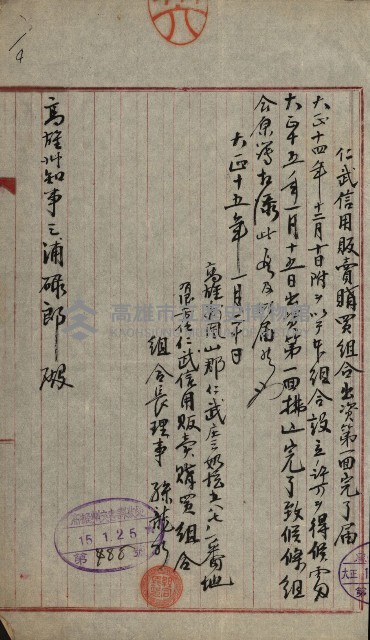 仁武信用販賣購買組合出資第一回完了届
大正十四年十二月十日附ヲ以テ本組合設立許可ヲ得候
大正十五年一月十五日出資第一回拂込完了致候條組
合原簿相添此段及届候也
大正十五年一月二十日
高雄州鳳山郡仁武庄
有限責任仁武信用販賣購買組合
組合長理事
高雄州知事三浦碌郎殿
15.1.25
第488号
高雄市立歷史博物館